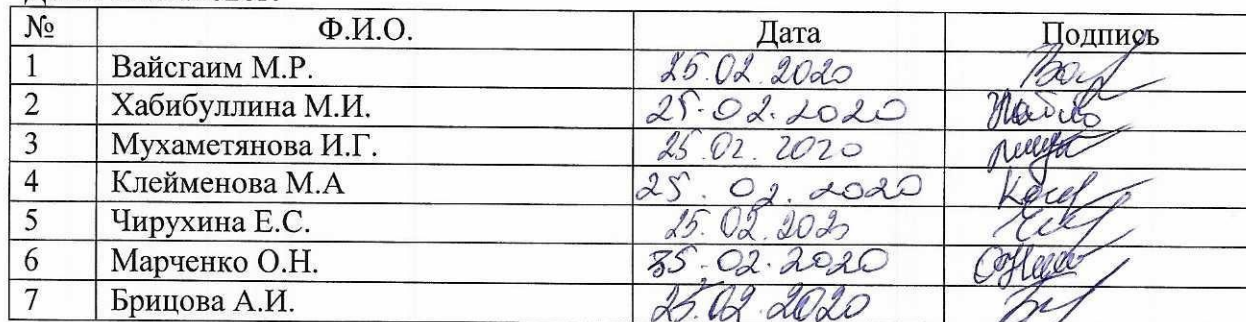 № Ф.И.О. Дата Подпись
1 Вайсгаим М.Р. 25.02.2020
2 Хабибуллина М.И. 25.02.2020
3 Мухаметянова И.Г. 25.02.2020
4 Клейменова М.А 25.02.2020
5 Чирухина Е.С. 25.02.2020
6 Марченко О.Н. 25.02.2020
7 Брицова А.И. 25.02.2020